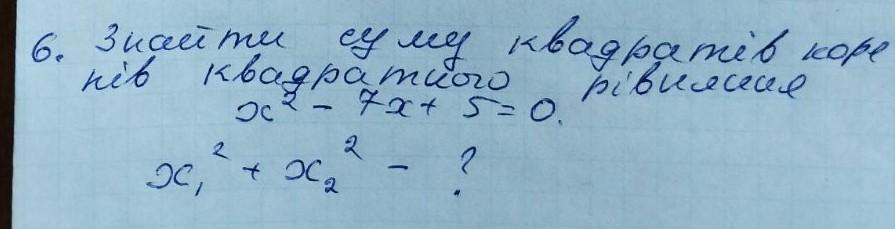 6. Знайти суму квадратів коре
нів квадратного рівняння
x² - 7x + 5 = 0.
x₁² + x₂² - ?